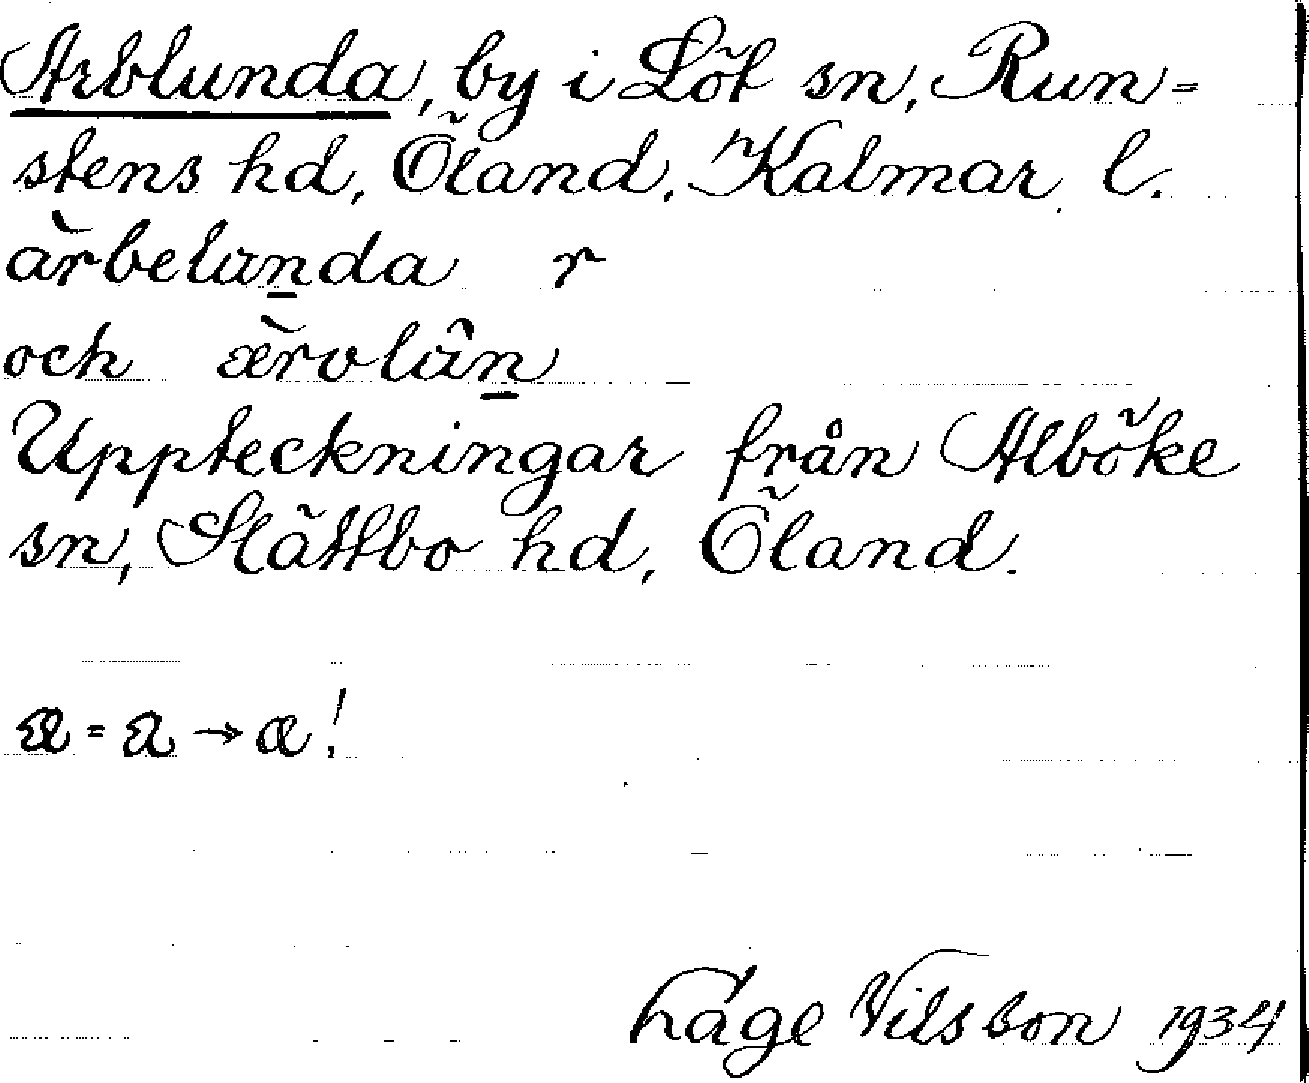 Arblunda, by i Löt sn, Run=
stens hd, Öland, Kalmar l.
àrbelunda r
och æ̀rvlân
Uppteckningar från Alböke
sn, Slättbo hd, Öland.
a = a → a!
Låge Nilsson 1934